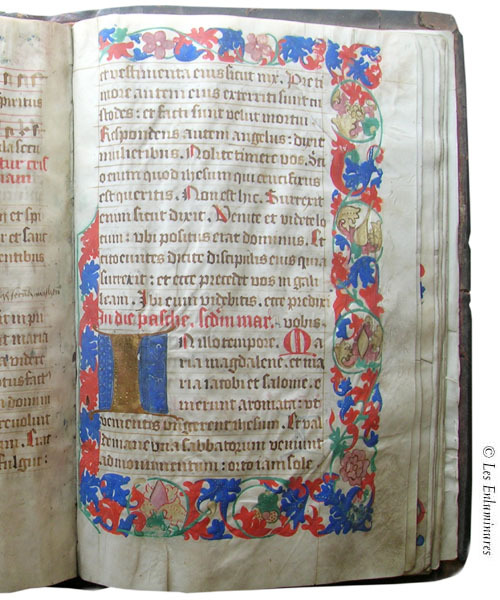 piritus
la secu
tur cris
mam
n et spi
et sanc
entibus
m in pu
maria
videre
otus fact
a domini
revoluit
m. Erat
fulgur:
et vestimenta eius sicut nix. Preti
more autem eius exterriti sunt cu
stodes: et facti sunt velut mortui.
Respondens autem angelus: dixit
mulieribus. Nolite timere vos. Sci
o enim quod ihesum qui crucifixus
est queritis. Non est hic. Surrexit
enim sicut dixit. Venite et videte lo
cum: ubi positus erat dominus. Et
cito euntes dicite discipulis eius quia
surrexit: et ecce precedet vos in gali
leam. Ibi eum videbitis. ecce predixi
In die pasche. Scdm mar. vobis.
In illo tempore. Ma
ria magdalene. et ma
ria iacobi et salome. e
merunt aromata: ut
venientes ungerent ihesum. Et val
de mane una sabbatorum veniunt
ad monumentum: orto iam sole.
© Les Enluminures